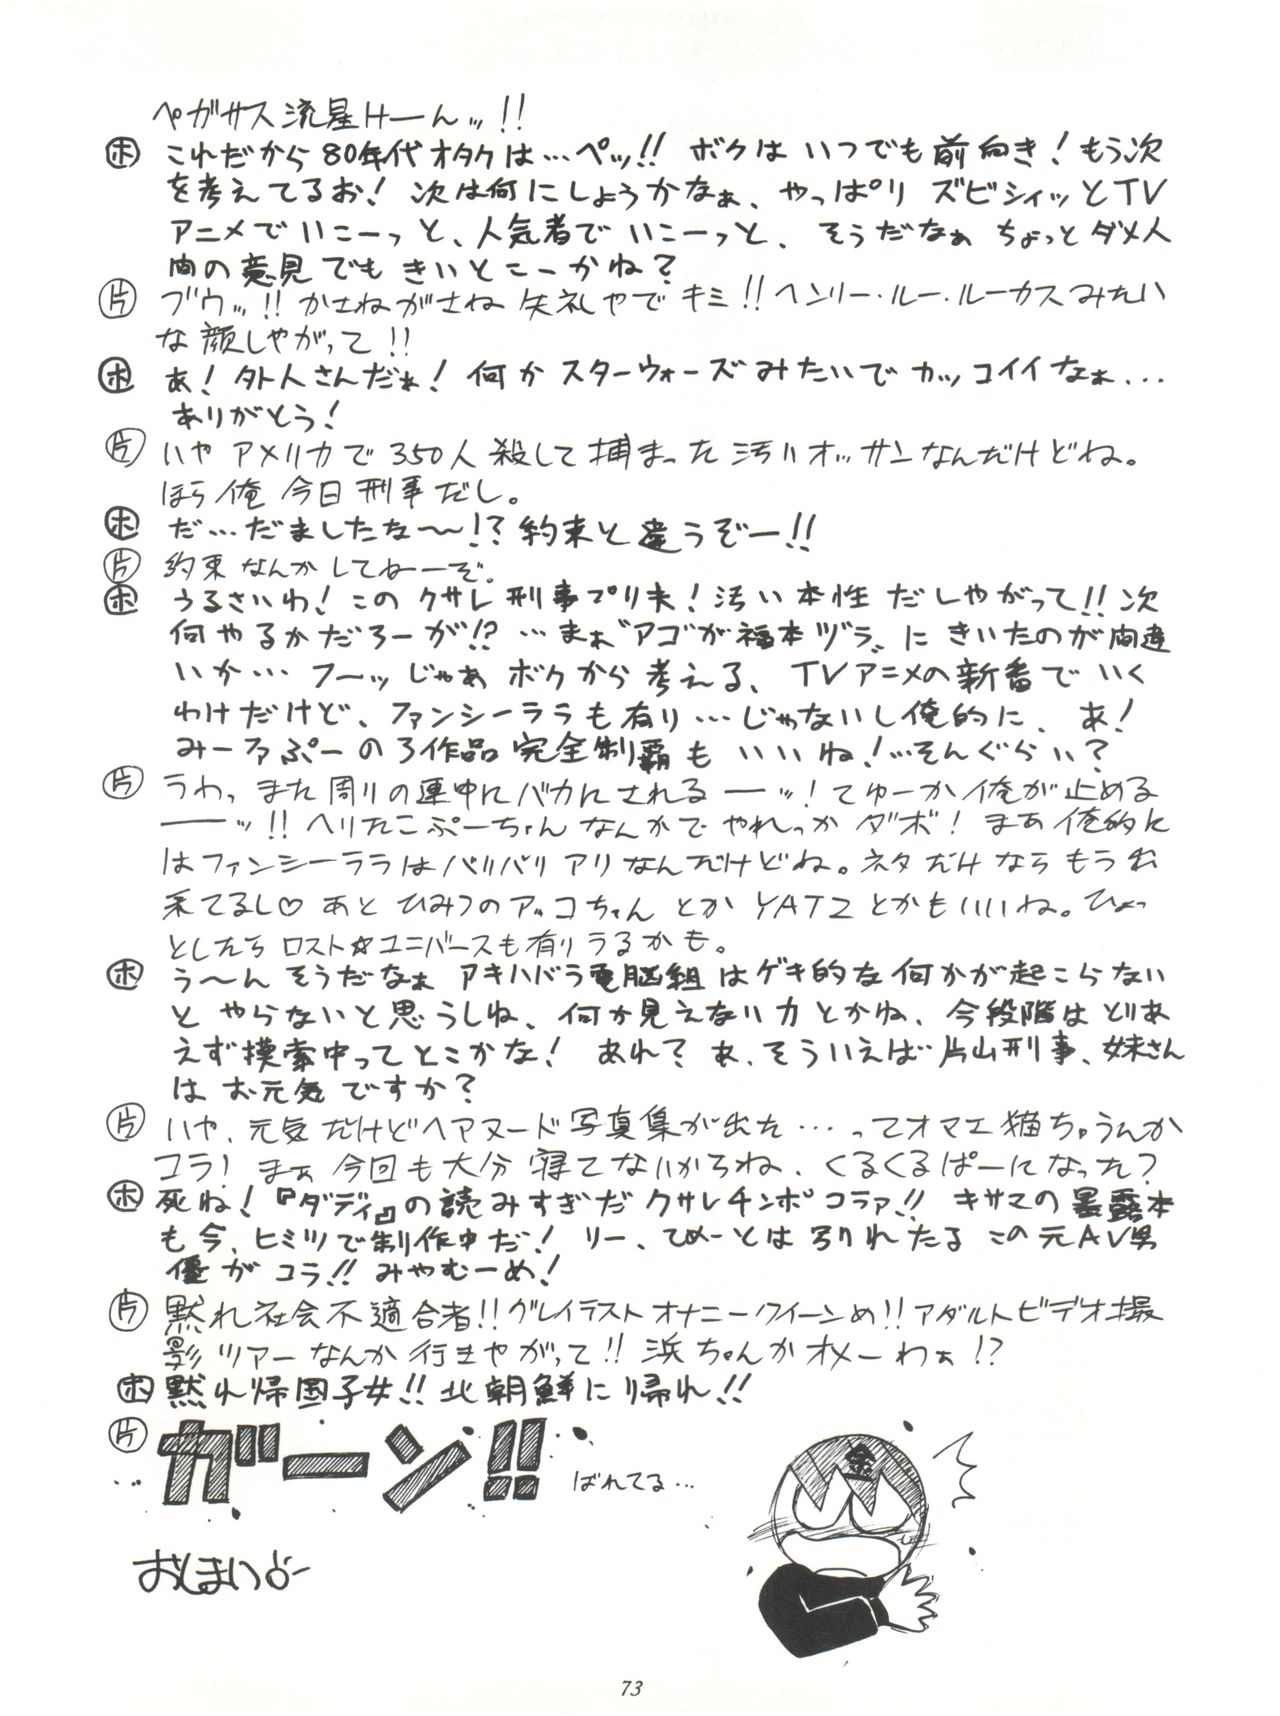 ペガサス流星けーんッ!!
ホ これだから80年代オタクは…ペッ!! ボクは いつでも前向き!もう次
を考えてるお! 次は何にしようかなぁ、やっぱり ズビシィッとTV
アニメでいこーっと、人気者でいこーっと、そうだなぁ ちょっとダメ人
間の意見でも きいとこーかね?
片 ブウッ!! かさねがさね 失礼やで キミ!! ヘンリー・ルー・ルーカスみたい
な顔しやがって!!
ホ あ! 外人さんだぁ! 何か スターウォーズみたいで カッコイイなぁ...
ありがとう!
片 いや アメリカで 350人 殺して 捕まった 汚いオッサンなんだけどね。
ほら俺 今日 刑事だし。
ホ だ…だましたな〜!? 約束と違うぞー!!
片 約束なんかしてねーぞ。
ホ うるさいわ! この クサレ刑事プリ夫! 汚い本性だしやがって!! 次
何やるかだろーが!? …まぁ〝アゴが福本ヅラ〟に きいたのが間違
いか… フーッ じゃあ ボクから 考える、 TVアニメの新番で いく
わけだけど、ファンシーララも有り…じゃないし俺的に、あ!
みーるぷーの3作品 完全制覇も いいね!…そんぐらい?
片 うわっ また周りの連中にバカにされる ーッ! てゆーか俺が止める
ーーッ!! へりたこぷーちゃん なんかで やれっか ダボ! まあ俺的に
はファンシーララはバリバリ アリ なんだけどね。ネタだけならもう出
来てるし♡ あと ひみつのアッコちゃん とか YAT2とかもいいね。ひょっ
としたら ロスト☆ユニバースも有りうるかも。
ホ う〜ん そうだなぁ アキハバラ電脳組はゲキ的な何かが起こらない
と やらないと思うしね、何か見えない力とかね、今段階は とりあ
えず模索中ってとこかな! あれ? あ、そういえば 片山刑事、妹さん
は お元気ですか?
片 いや、元気だけどヘアヌード写真集が出た…ってオマエ猫ちゃうんか
コラ! まぁ 今回も大分 寝てないからね、くるくるぱーになった?
ホ 死ね!『ダディ』の読みすぎだ クサレチンポコラァ!! キサマの暴露本
も今、ヒミツで制作中だ! リー、てめーとは 別れたる この元AV男
優が コラ!! みやむーめ!
片 黙れ社会不適合者!! グレイラストオナニークイーンめ!! アダルトビデオ撮
影ツアーなんか行きやがって!! 浜ちゃんか オメーわぁ!?
ホ 黙れ帰国子女!! 北朝鮮に帰れ!!
片 ガーン!! ばれてる…
金
おしまい
73